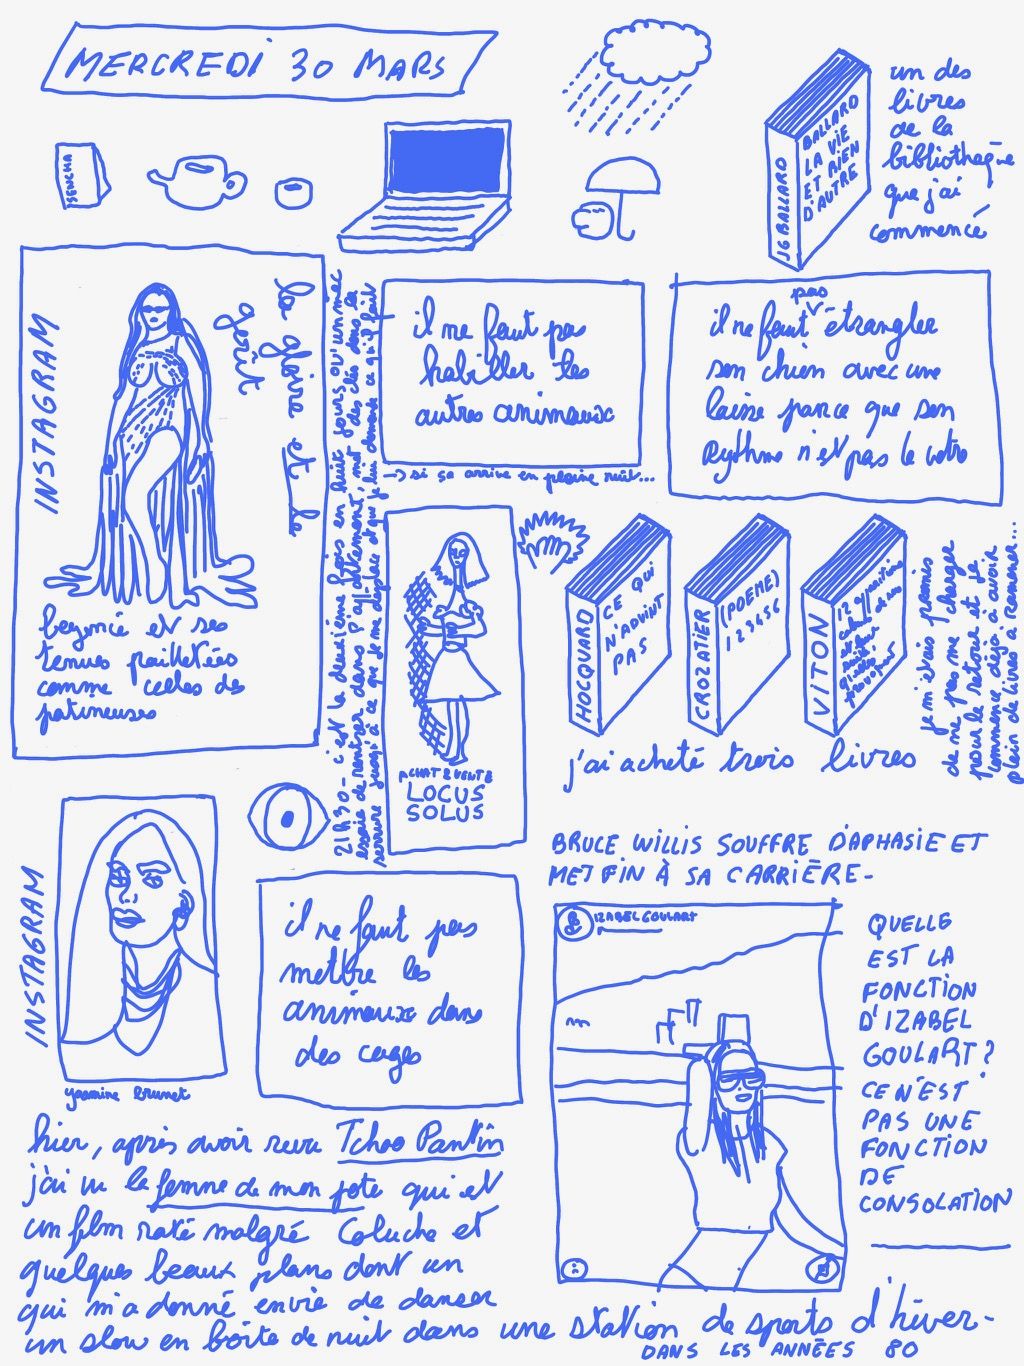 MERCREDI 30 MARS
SENCHA
JG BALLARD
BALLARD
LA VIE
ET RIEN
D'AUTRE
un des
livres
de la
bibliothèque
que j'ai
commencé
INSTAGRAM
la gloire et le
goût
beyoncé et ses
tenues pailletées
comme celles des
patineuses
21H30 - c'est la deuxième fois en huit jours qu'un mec
essaie de rentrer dans l'appartement, met des clés dans la
serrure jusqu'à ce que je me déplace et que je lui demande ce qu'il fait
il ne faut pas
habiller les
autres animaux
-> si ça arrive en pleine nuit...
il ne faut pas étrangler
son chien avec une
laisse parce que son
rythme n'est pas le votre
ACHAT & VENTE
LOCUS
SOLUS
HOCQUARD
CE QUI
N'ADVINT
PAS
CROZATIER
(POEME)
123456
VITON
j'ai acheté trois livres
je m'étais promis
de ne pas me charger
pour le retour et je
commence déjà à avoir
plein de livres à ramener...
INSTAGRAM
yasmine brunet
il ne faut pas
mettre les
animaux dans
des cages
BRUCE WILLIS SOUFFRE D'APHASIE ET
MET FIN À SA CARRIÈRE -
IZABEL GOULART
QUELLE
EST LA
FONCTION
D'IZABEL
GOULART?
CE N'EST
PAS UNE
FONCTION
DE
CONSOLATION
hier, après avoir revu Tchao Pantin
j'ai vu la femme de mon pote qui est
un film raté malgré Coluche et
quelques beaux plans dont un
qui m'a donné envie de danser
un slow en boîte de nuit dans une station de sports d'hiver -
DANS LES ANNÉES 80